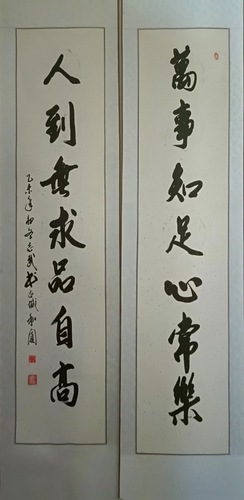 萬事知足心常樂
人到無求品自高
乙未年